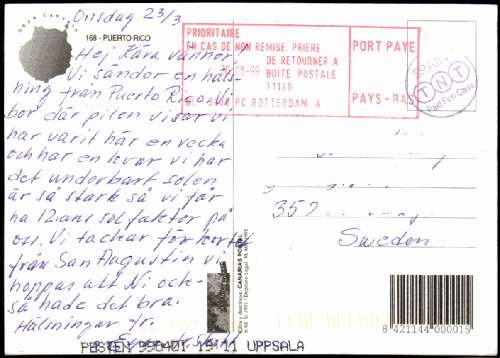 Onsdag 23/3
GRAN CANARIA
168 - PUERTO RICO
Hej Kära vänner
Vi sänder en häls-
ning från Puerto Rico. Vi
bor där pilen visar vi
har varit här en vecka
och har en kvar vi har
det underbart solen
är så stark så vi får
ha 12ans solfaktor på
oss. Vi tackar för kortet
från San Augustin vi
hoppas att Ni ock-
så hade det bra.
Hälsningar fr.
PRIORITAIRE
EN CAS DE NON REMISE, PRIERE
DE RETOURNER A
BOITE POSTALE
PC ROTTERDAM A
PORT PAYE
PAYS-BAS
SPAIN
TNT
CANARIAS POSTAL
352
Sweden
8 421144 000015
POSTEN 990401 19 11 UPPSALA